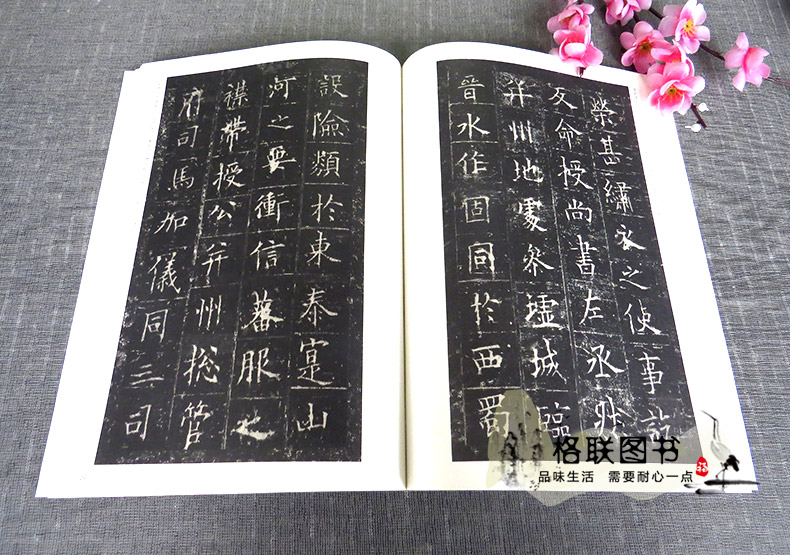 榮甚繡衣之使事訖
反命授尚書左丞然
并州地處叅墟城臨
晉水作固同於西蜀
設險類於東秦寔山
河之要衝信蕃服之
襟帶授公并州揔管
府司馬加儀同三司
格联图书
品味生活 需要耐心一点